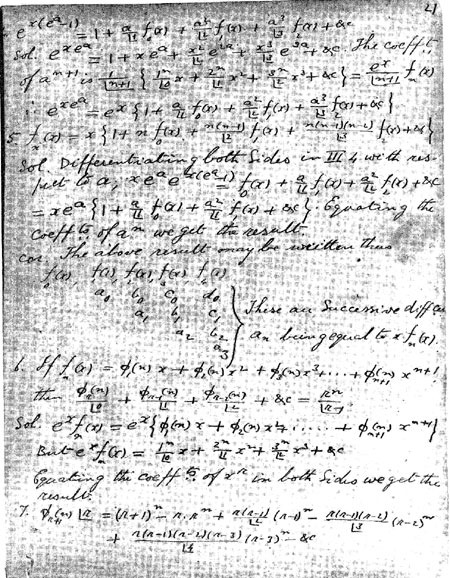 21
e^{x(e^a-1)} = 1 + a/⌊1 f_0(x) + a²/⌊2 f_1(x) + a³/⌊3 f_2(x) + &c
Sol. e^{xe^a} = 1 + xe^a + x²/⌊2 e^{2a} + x³/⌊3 e^{3a} + &c. The coefft.
of a^{n+1} is 1/⌊n+1 { 1^n/⌊0 x + 2^n/⌊1 x² + 3^n/⌊2 x³ + &c } = e^x/⌊n+1 f_n(x)
∴ e^{xe^a} = e^x { 1 + a/⌊1 f_0(x) + a²/⌊2 f_1(x) + a³/⌊3 f_2(x) + &c }
5. f_n(x) = x { 1 + n f_0(x) + n(n-1)/⌊2 f_1(x) + n(n-1)(n-2)/⌊3 f_2(x) + &c }
Sol. Differentiating both Sides in III 4 with res-
pect to a, xe^a e^{x(e^a-1)} = f_0(x) + a/⌊1 f_1(x) + a²/⌊2 f_2(x) + &c
= xe^a { 1 + a/⌊1 f_0(x) + a²/⌊2 f_1(x) + &c }. Equating the
coeffts of a^n we get the result.
Cor. The above result may be written thus
f_0(x), f_1(x), f_2(x), f_3(x), f_4(x)
a_0 b_0 c_0 d_0
a_1 b_1 c_1
a_2 b_2
a_3
These are Successive diff
a_n being equal to x f_n(x).
6. If f_n(x) = φ_1(n) x + φ_2(n) x² + φ_3(n) x³ + .... + φ_{n+1}(n) x^{n+1}
then φ_r(n)/⌊0 + φ_{r-1}(n)/⌊1 + φ_{r-2}(n)/⌊2 + &c = r^n/⌊r-1
Sol. e^x f_n(x) = e^x { φ_1(n) x + φ_2(n) x² + ...... + φ_{n+1}(n) x^{n+1} }
But e^x f_n(x) = 1^n/⌊0 x + 2^n/⌊1 x² + 3^n/⌊2 x³ + &c
Equating the coeffts. of x^r in both Sides we get the
result.
7. φ_{r+1}(n) ⌊r = (r+1)^n - r.r^n + r(r-1)/⌊2 (r-1)^n - r(r-1)(r-2)/⌊3 (r-2)^n
+ r(r-1)(r-2)(r-3)/⌊4 (r-3)^n - &c